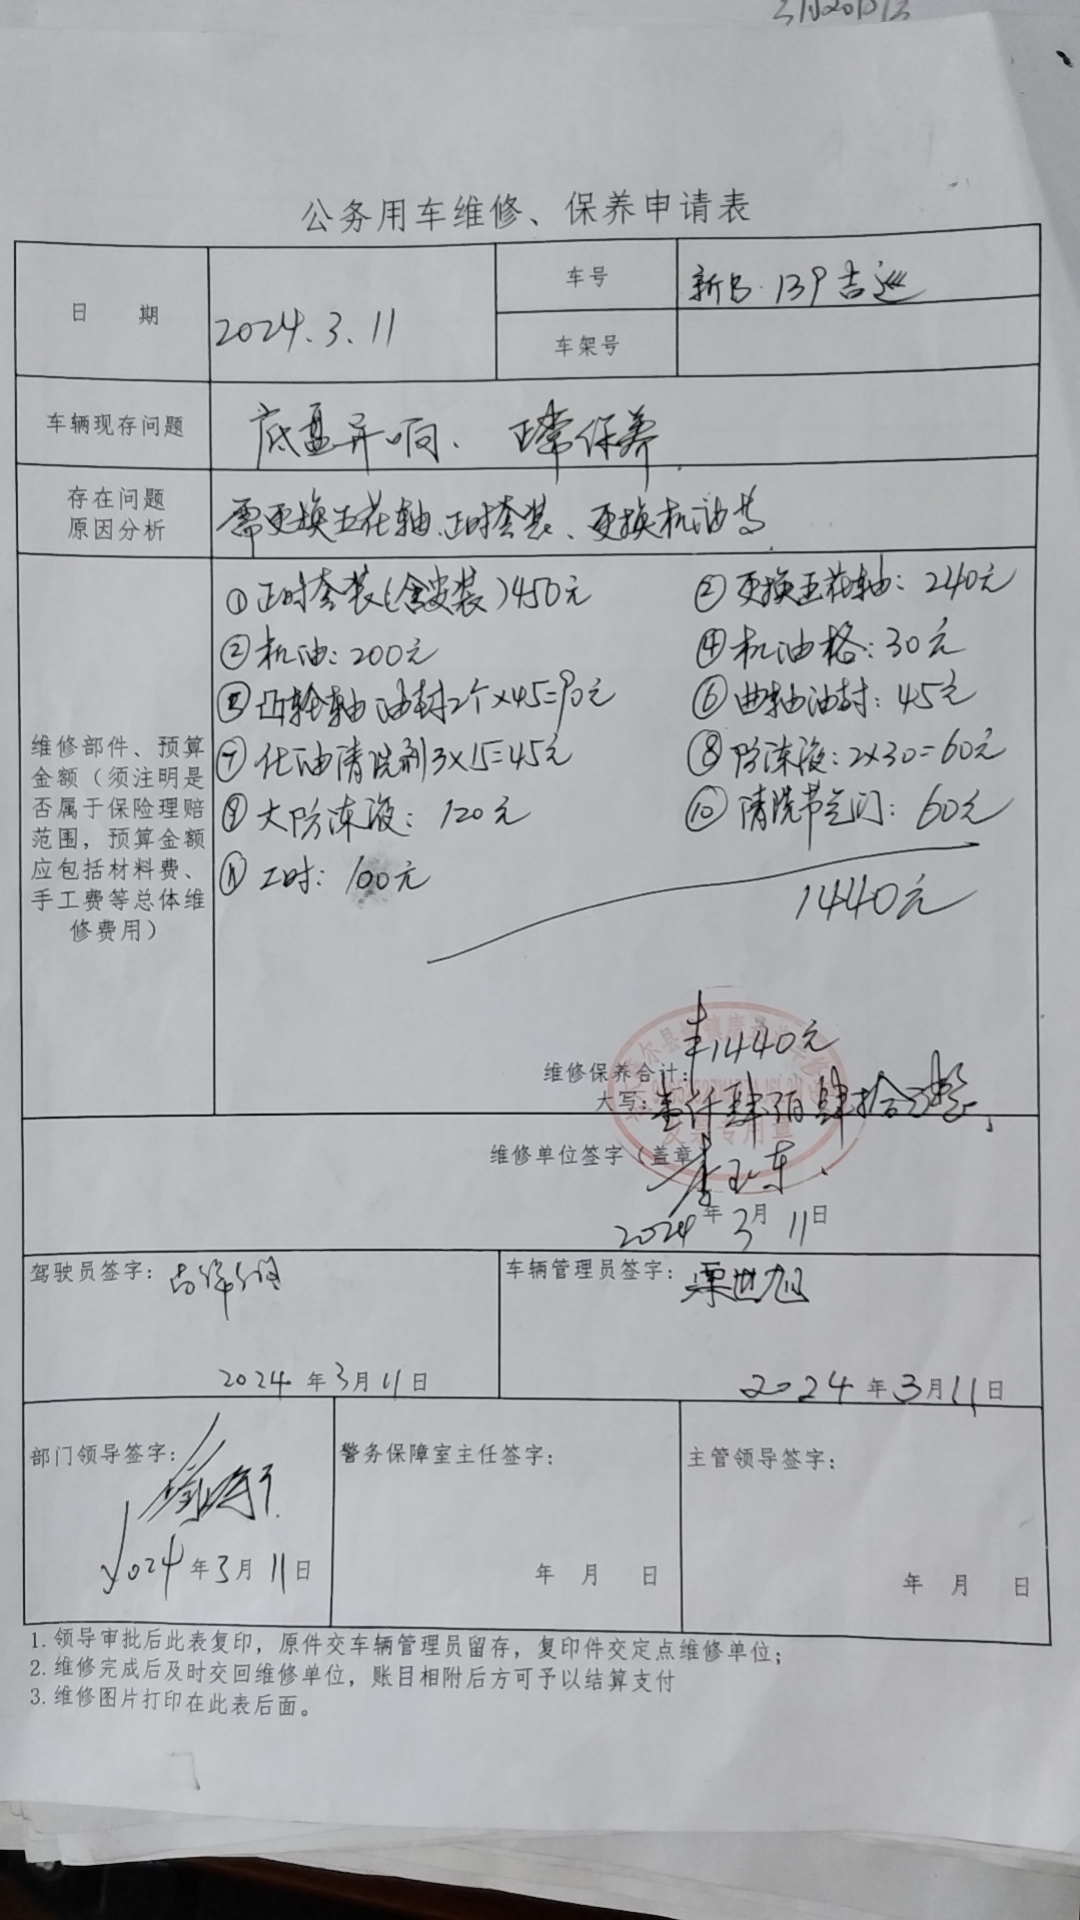 公务用车维修、保养申请表
日 期
2024.3.11
车号
新B·139吉巡
车架号
车辆现存问题
底盘异响、正常保养
存在问题
原因分析
需更换五花轴、正时套装、更换机油等
维修部件、预算
金额（须注明是
否属于保险理赔
范围，预算金额
应包括材料费、
手工费等总体维
修费用）
①正时套装（含安装）450元 ②更换五花轴：240元
②机油：200元 ④机油格：30元
⑤凸轮轴油封2个×45=90元 ⑥曲轴油封：45元
⑦化油清洗剂3×15=45元 ⑧防冻液：2×30=60元
⑨大防冻液：120元 ⑩清洗节气门：60元
⑪工时：100元
1440元
维修保养合计：
1440元
大写：壹仟肆佰肆拾元整
发票专用章
维修单位签字（盖章
2024年3月11日
驾驶员签字：
2024年3月11日
车辆管理员签字：栗世旭
2024年3月11日
部门领导签字：
2024年3月11日
警务保障室主任签字：
年 月 日
主管领导签字：
年 月 日
1.领导审批后此表复印，原件交车辆管理员留存，复印件交定点维修单位；
2.维修完成后及时交回维修单位，账目相附后方可予以结算支付
3.维修图片打印在此表后面。